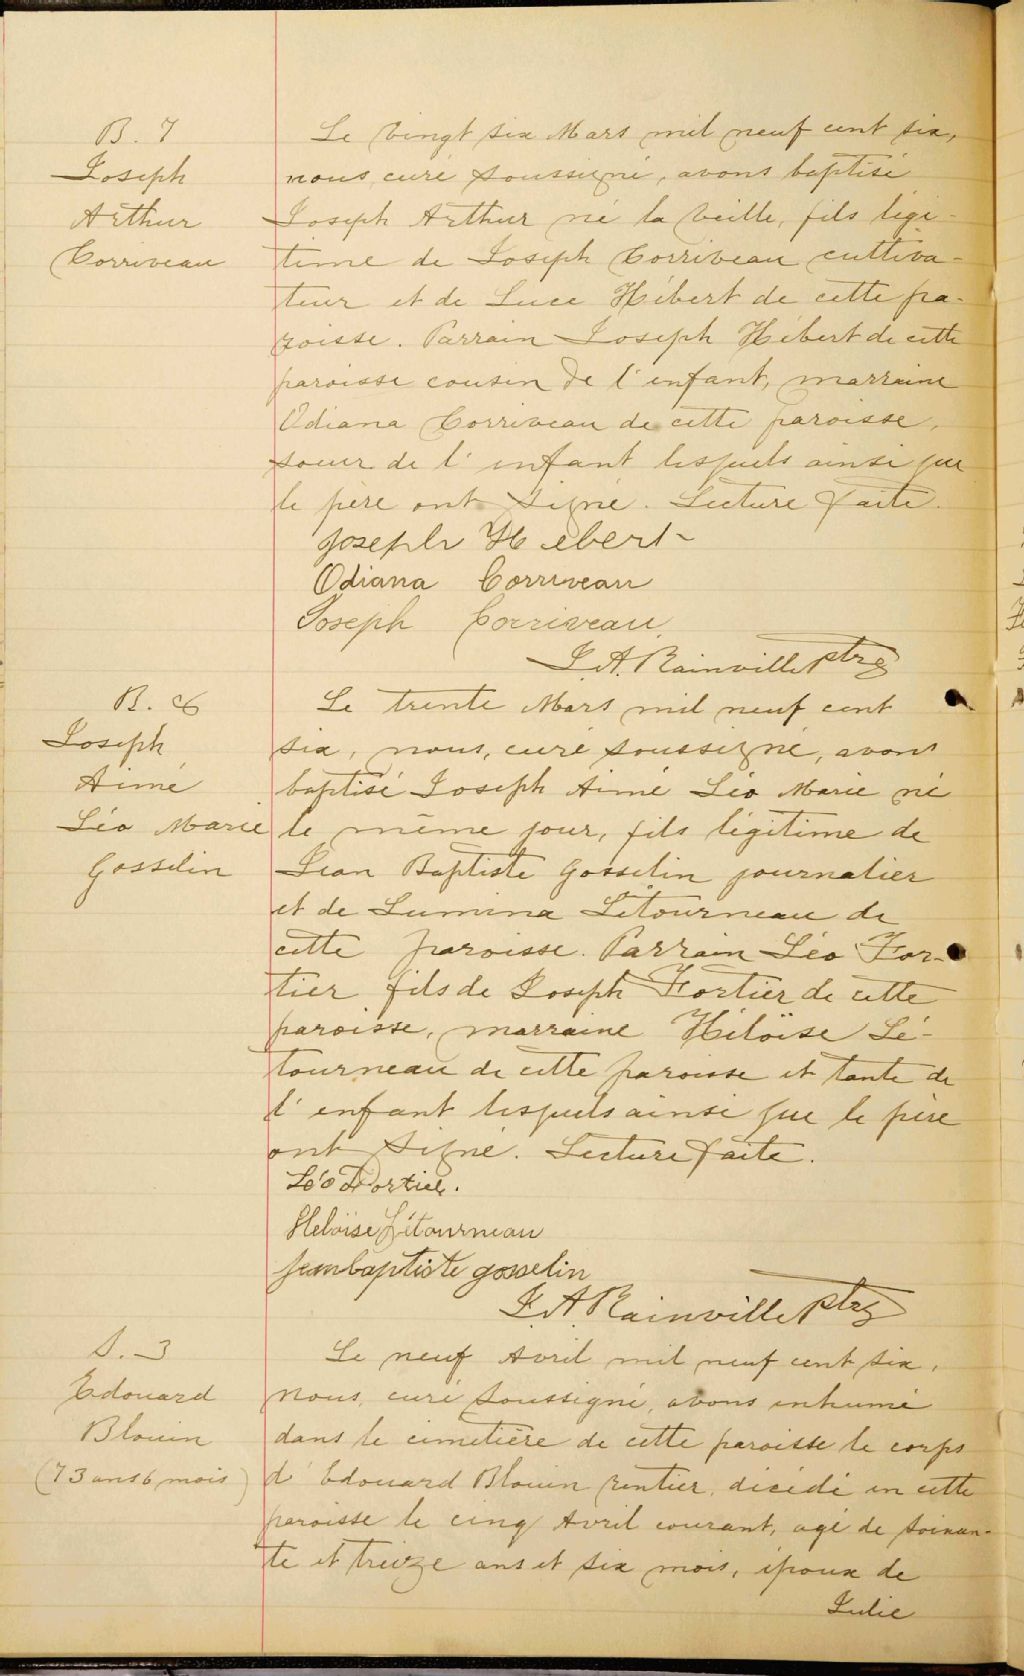 B. 7
Joseph
Arthur
Corriveau
Le vingt six Mars mil neuf cent six,
nous, curé soussigné, avons baptisé
Joseph Arthur né la veille, fils légi-
time de Joseph Corriveau cultiva-
teur et de Luce Hébert de cette pa-
roisse. Parrain Joseph Hébert de cette
paroisse cousin de l'enfant, marraine
Odiana Corriveau de cette paroisse,
soeur de l'enfant lesquels ainsi que
le père ont signé. Lecture faite.
Joseph Hebert
Odiana Corriveau
Joseph Corriveau
J. A. Rainville Ptre
B. 8
Joseph
Aimé
Léo Marie
Gosselin
Le trente Mars mil neuf cent
six, nous, curé soussigné, avons
baptisé Joseph Aimé Léo Marie né
le même jour, fils légitime de
Jean Baptiste Gosselin journalier
et de Lumina Létourneau de
cette paroisse. Parrain Léo For-
tier fils de Joseph Fortier de cette
paroisse, marraine Héloïse Lé-
tourneau de cette paroisse et tante de
l'enfant lesquels ainsi que le père
ont signé. Lecture faite.
Léo Fortier.
Heloïse Létourneau
Jeanbaptiste gosselin
J. A. Rainville Ptre
S. 3
Edouard
Blouin
(73 ans 6 mois)
Le neuf Avril mil neuf cent six,
nous, curé soussigné, avons inhumé
dans le cimetière de cette paroisse le corps
d'Edouard Blouin rentier, décédé en cette
paroisse le cinq Avril courant, agé de soixan-
te et treize ans et six mois, époux de
Julie